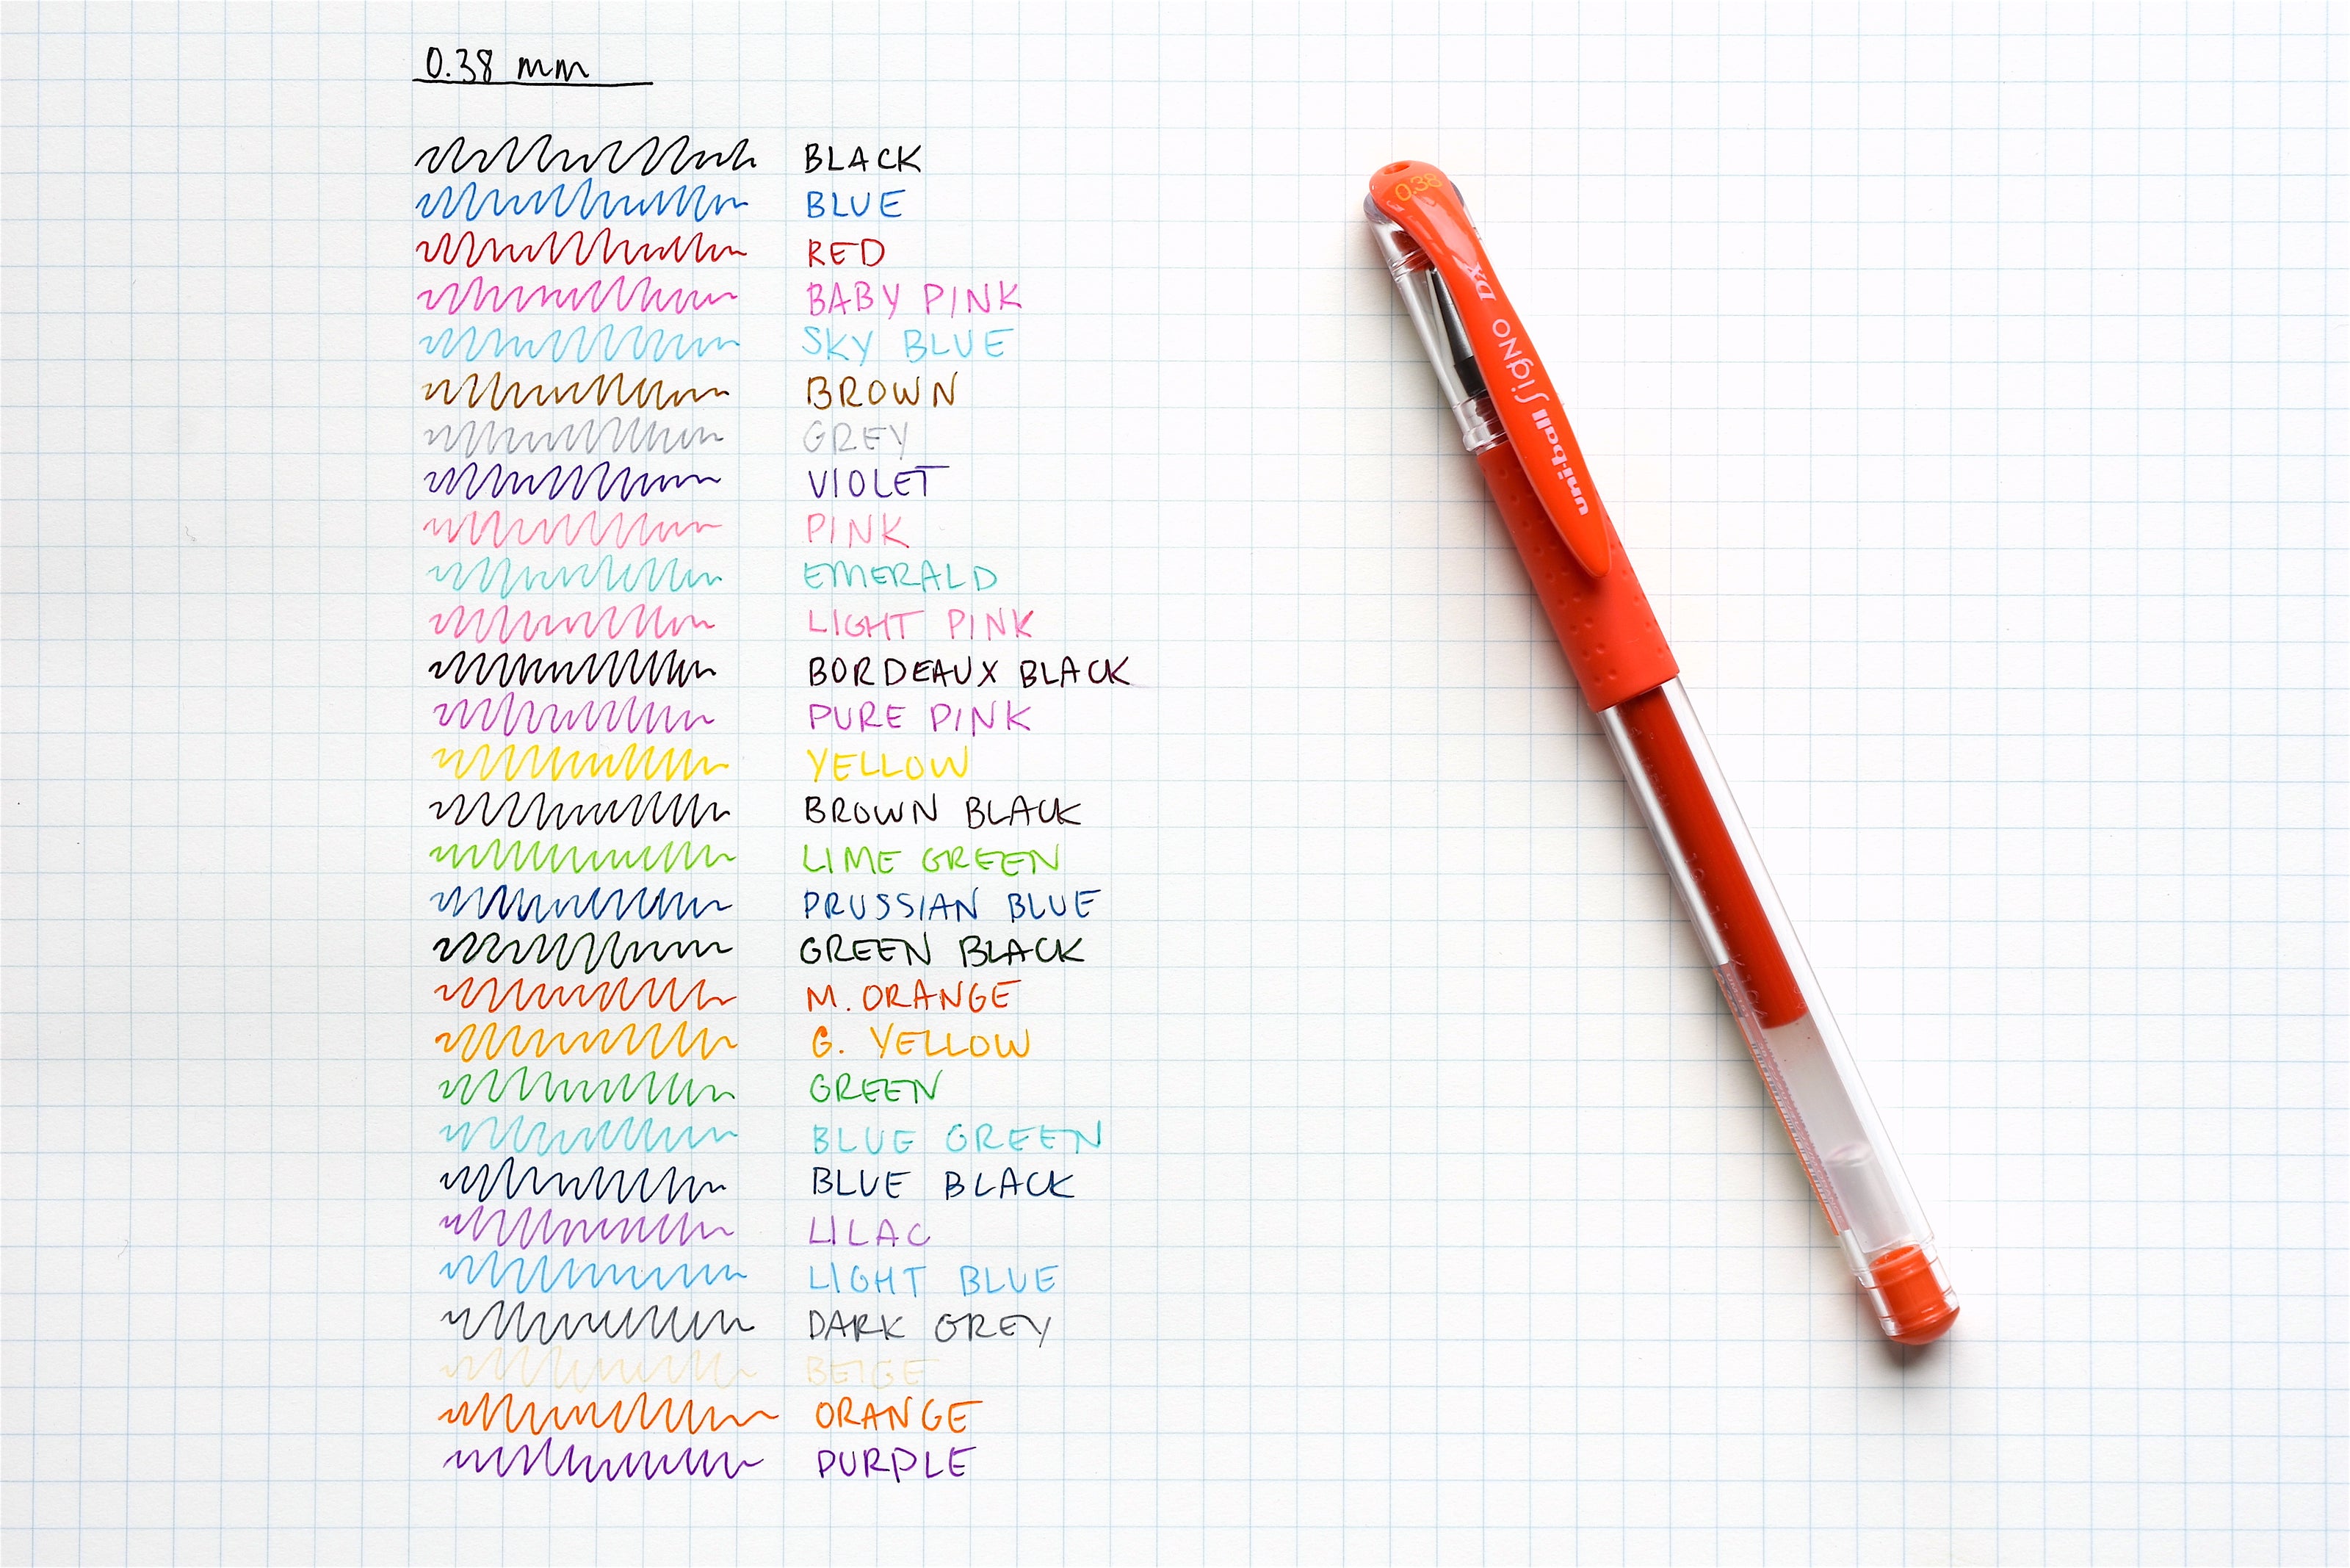 0.38 mm
BLACK
BLUE
RED
BABY PINK
SKY BLUE
BROWN
GREY
VIOLET
PINK
EMERALD
LIGHT PINK
BORDEAUX BLACK
PURE PINK
YELLOW
BROWN BLACK
LIME GREEN
PRUSSIAN BLUE
GREEN BLACK
M. ORANGE
G. YELLOW
GREEN
BLUE GREEN
BLUE BLACK
LILAC
LIGHT BLUE
DARK GREY
BEIGE
ORANGE
PURPLE
0.38
uni-ball SigNO DX